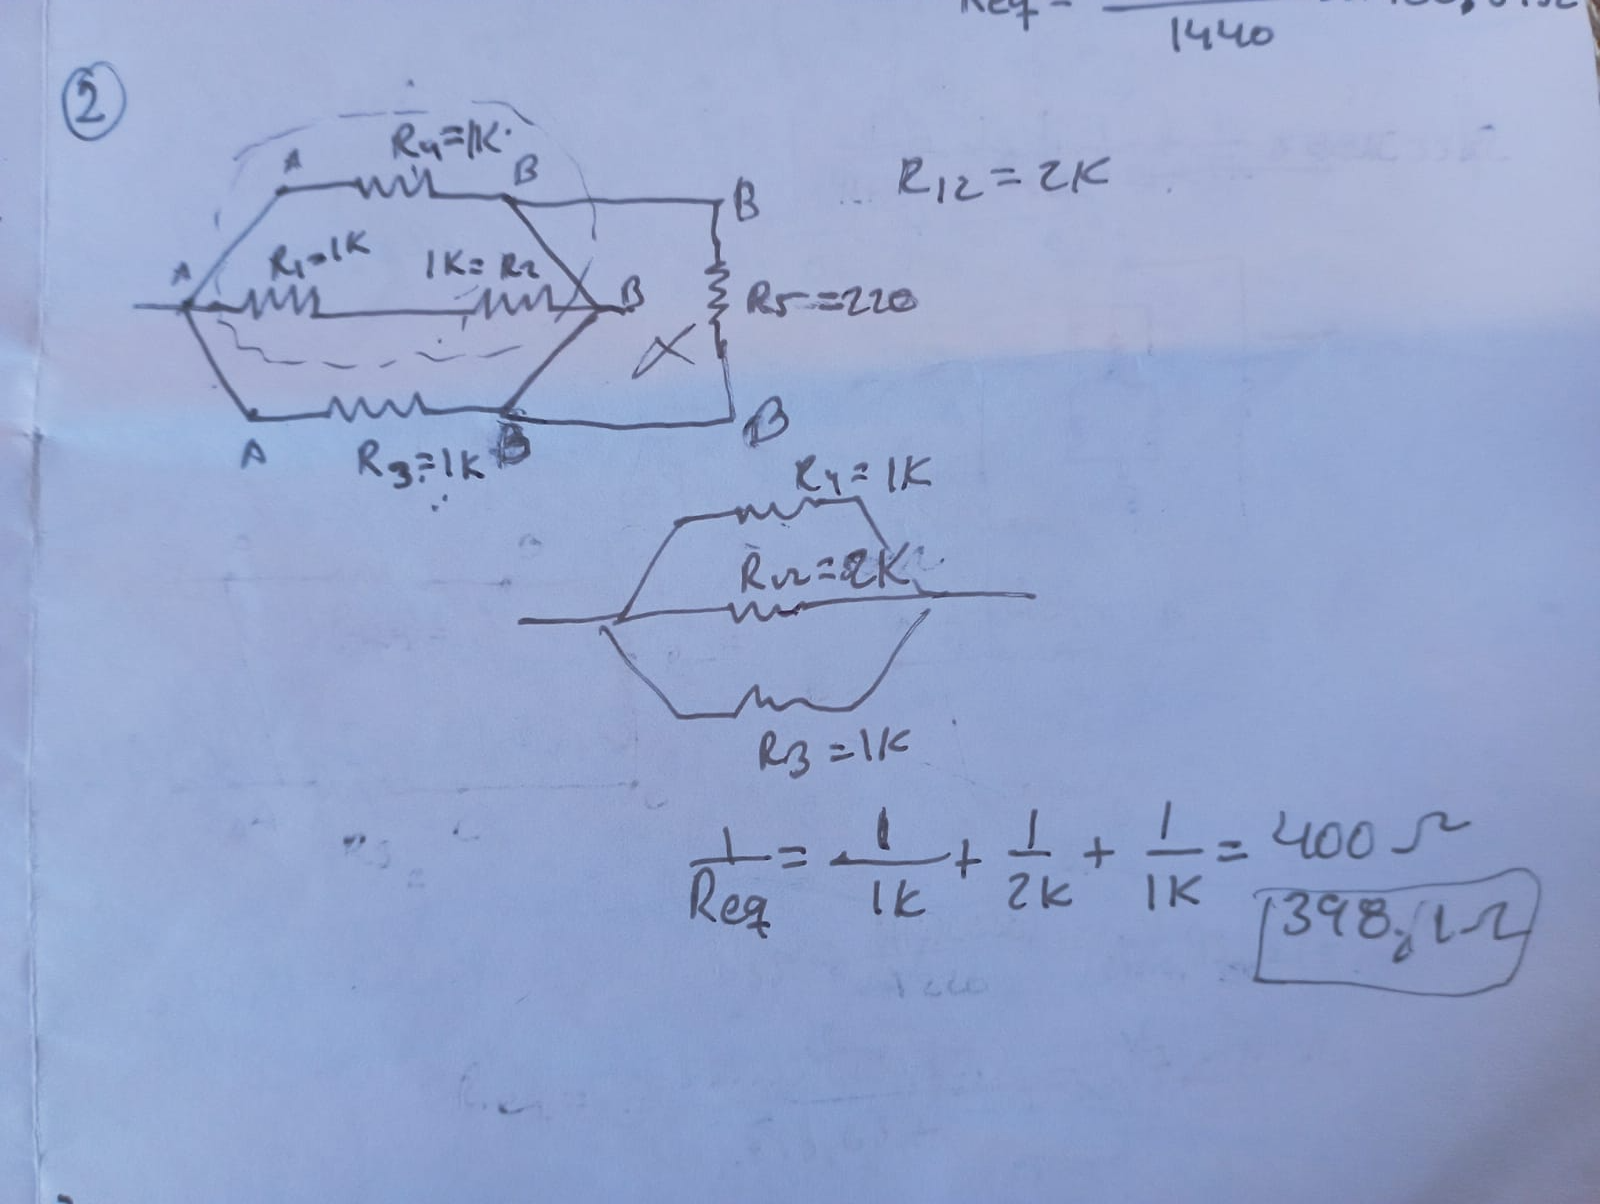 Req =
1440
2
R4=1K
A
B
B
R12 = 2K
A
R1=1K
1K=R2
B
R5=220
A
R3=1K
B
B
R4=1K
R12=2K
R3=1K
1/Req = 1/1K + 1/2K + 1/1K = 400 Ω
398,1Ω